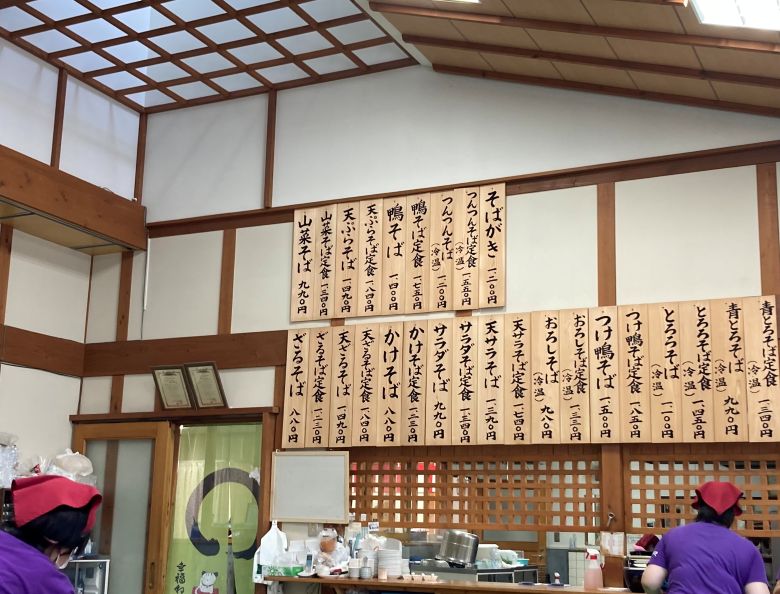 そばがき 一二〇〇円
つんつんそば定食(冷温) 一五五〇円
つんつんそば(冷温) 一二〇〇円
鴨そば定食 一七五〇円
鴨そば 一四〇〇円
天ぷらそば定食 一八四〇円
天ぷらそば 一四九〇円
山菜そば定食 一三四〇円
山菜そば 九九〇円
青とろそば定食(冷温) 一三四〇円
青とろそば(冷温) 九九〇円
とろろそば定食(冷温) 一四五〇円
とろろそば(冷温) 一一〇〇円
つけ鴨そば定食 一八五〇円
つけ鴨そば 一五〇〇円
おろしそば定食(冷温) 一三三〇円
おろしそば(冷温) 九八〇円
天サラそば定食 一七四〇円
天サラそば 一三九〇円
サラダそば定食 一三四〇円
サラダそば 九九〇円
かけそば定食 一二三〇円
かけそば 八八〇円
天ざるそば定食 一八四〇円
天ざるそば 一四九〇円
ざるそば定食 一二三〇円
ざるそば 八八〇円